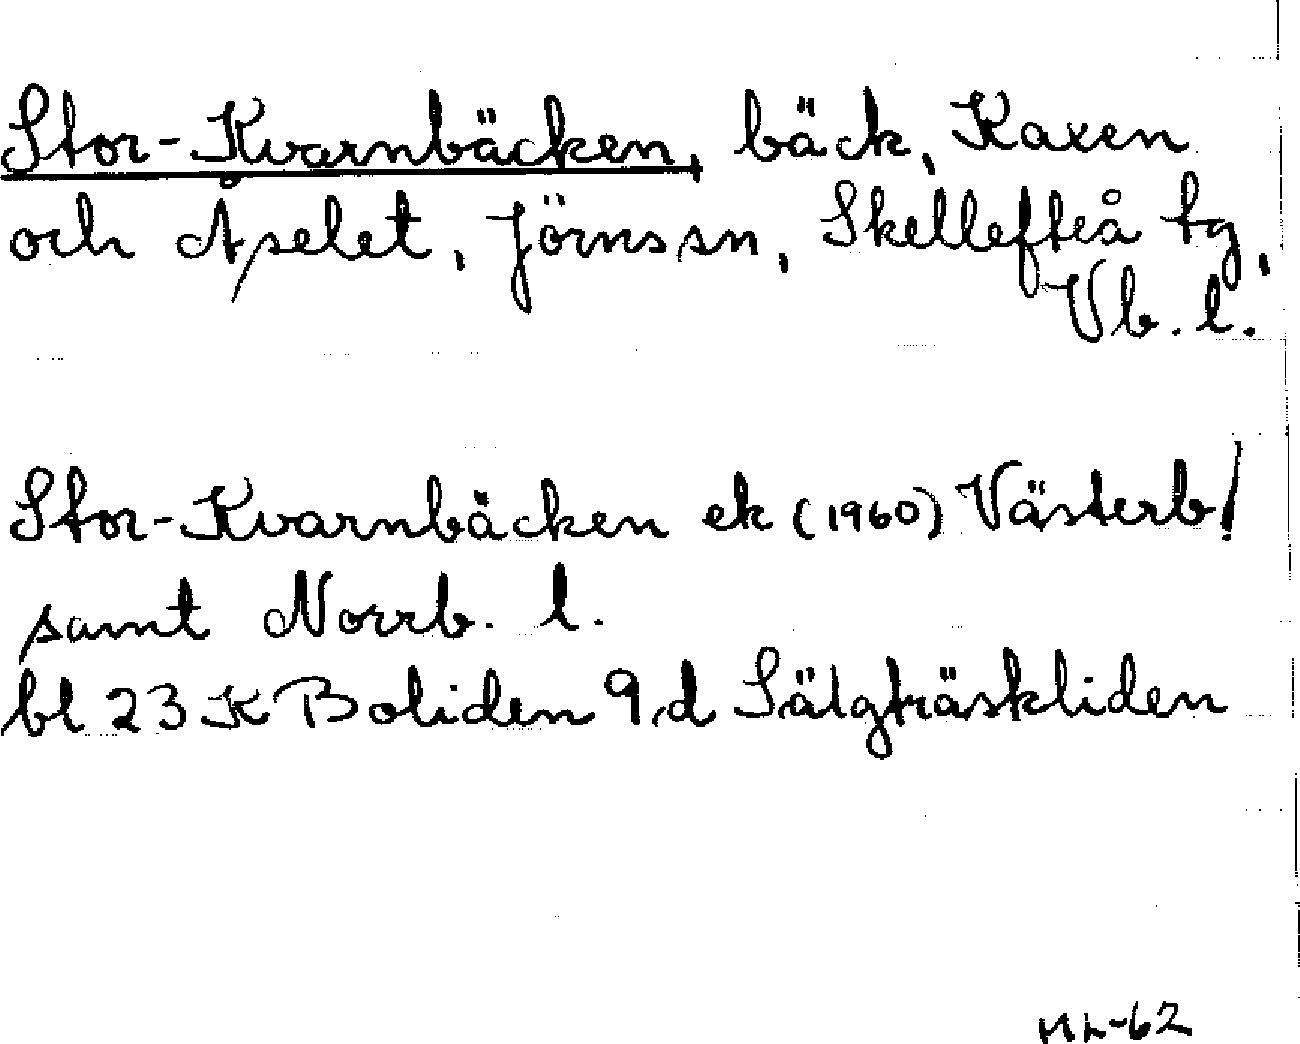 Stor-Kvarnbäcken, bäck, Kaxen
och Åselet, Jörns sn, Skellefteå tg,
Vb. l.
Stor-Kvarnbäcken ek (1960) Västerb/
samt Norrb. l.
bl 23 K Boliden 9 d Sälgträskliden
ML-62